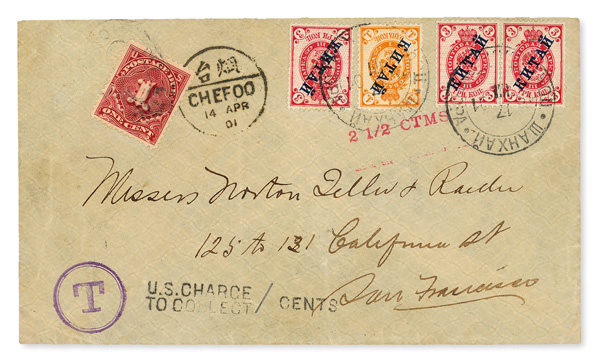 POSTAGE DUE
1
ONE CENT
台烟
CHEFOO
14 APR
01
3 3
КИТАЙ
1 1
КИТАЙ
3 3
КИТАЙ
3 3
КИТАЙ
ШАНХАЙ
17
2 1/2 CTMS
Messers Norton Teller & Roeder
125 to 131 California St
San Francisco
T
U.S. CHARGE
TO COLLECT / CENTS